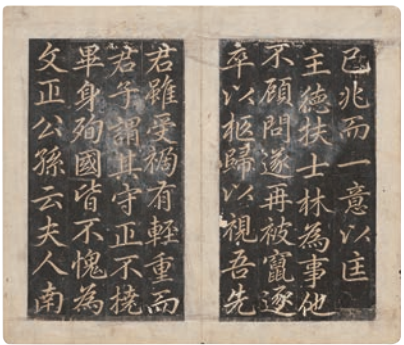 已兆而一意以匡
主德扶士林為事他
不顧問遂再被竄逐
卒以柩歸以視吾先
君雖受禍有輕重而
君子謂其守正不撓
畢身殉國皆不愧為
文正公孫云夫人南